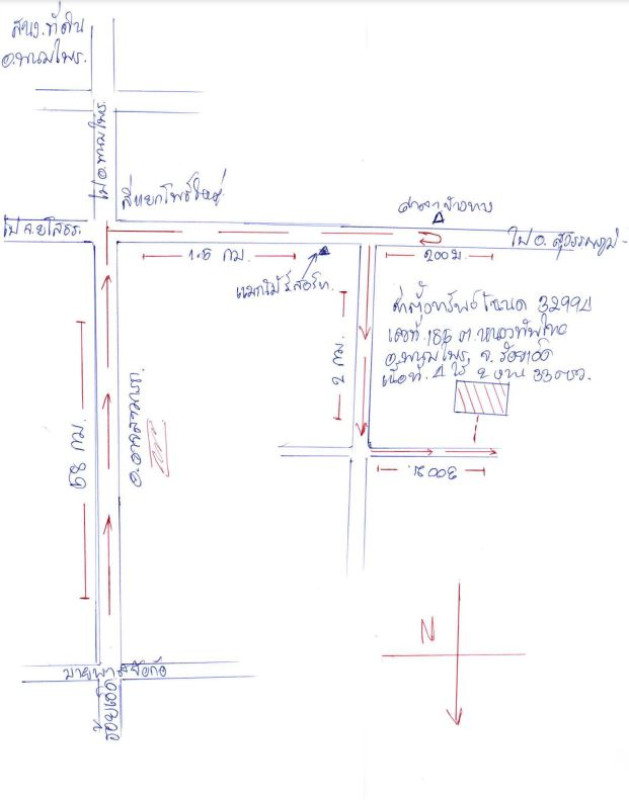 สนง.ที่ดิน
อ.พนมไพร.
ไป อ.พนมไพร.
สี่แยกโพธิ์ใหญ่
ไป จ.ยโสธร.
ศาลาข้างทาง
ไป อ. สุวรรณภูมิ
1.5 กม.
200 ม.
แมกไม้รีสอร์ท.
ที่ตั้งทรัพย์ โฉนด 32994
เลขที่ 185 ต. หนองทัพไทย
อ.พนมไพร, จ. ร้อยเอ็ด
เนื้อที่ 4 ไร่ 2 งาน 33 ตรว.
2 กม.
58 กม.
อ. อาจสามารถ
300 ม.
N
ร้อยเอ็ด